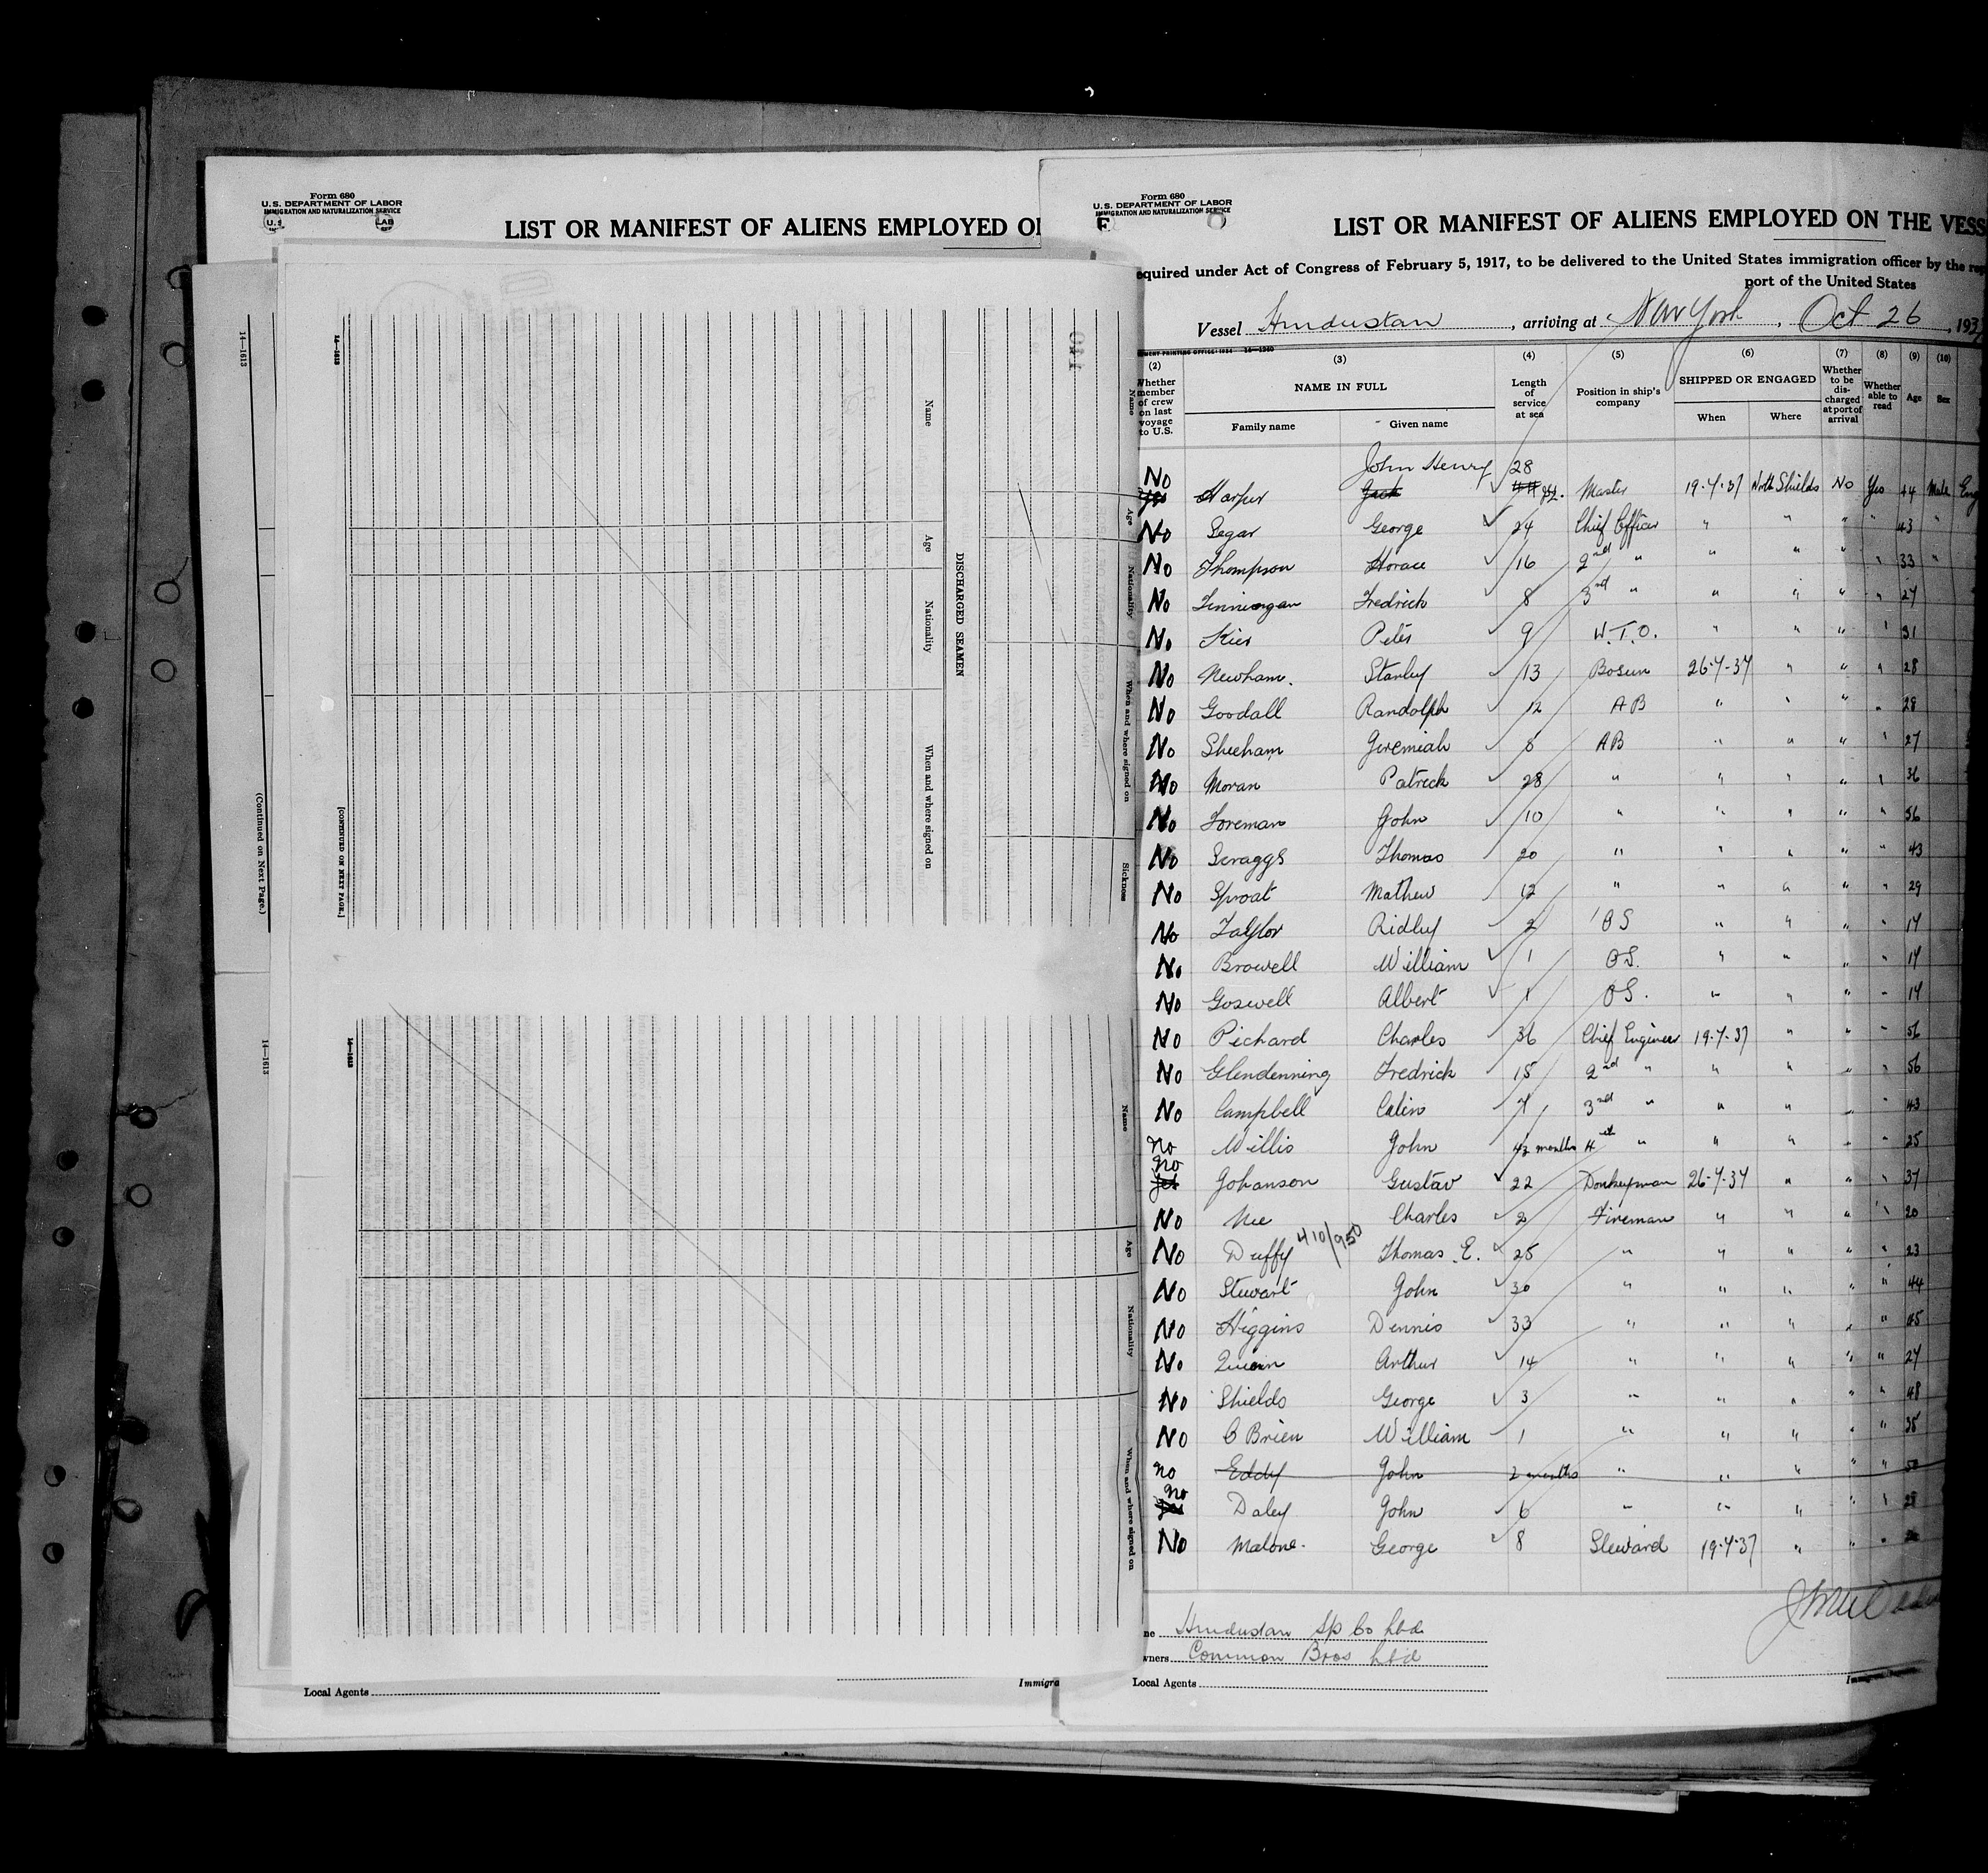 Form 680
U.S. DEPARTMENT OF LABOR
IMMIGRATION AND NATURALIZATION SERVICE
LIST OR MANIFEST OF ALIENS EMPLOYED
14—1613
(Continued on Next Page.)
14—1613
14—1613
[CONTINUED ON NEXT PAGE.]
14—1613
Name
Age
Nationality
When and where signed on
DISCHARGED SEAMEN
Name
Age
Nationality
When and where signed on
Sickness
Name
Age
Nationality
When and where signed on
Local Agents
Immigra
Form 680
U.S. DEPARTMENT OF LABOR
IMMIGRATION AND NATURALIZATION SERVICE
LIST OR MANIFEST OF ALIENS EMPLOYED ON THE VESS
equired under Act of Congress of February 5, 1917, to be delivered to the United States immigration officer by the rep
port of the United States
Vessel Hindustan, arriving at New York, Oct 26, 193
(2) (3) (4) (5) (6) (7) (8) (9) (10)
Whether member of crew on last voyage to U.S. NAME IN FULL Family name Given name Length of service at sea Position in ship's company SHIPPED OR ENGAGED When Where Whether to be discharged at port of arrival Whether able to read Age Sex
No John Henry 28
Yes Harper Jack yrs. Master 19.7.37 North Shields No Yes 44 Male Eng
No Segar George 24 Chief Officer " " " " 43 "
No Thompson Horace 16 2nd " " " " " 33 "
No Finnigan Fredrick 8 3rd " " " " " 27
No Kier Peter 9 W.T.O. " " " " 31
No Newham. Stanley 13 Bosun 26-7-37 " " " 28
No Goodall Randolph 12 AB " " " " 28
No Sheeham Jeremiah 8 AB " " " " 27
No Moran Patrick 28 " " " " " 36
No Foreman John 10 " " " " " 36
No Scraggs Thomas 20 " " " " " 43
No Sproat Mathew 12 " " " " " 29
No Taylor Ridley 2 OS " " " " 17
No Browell William 1 OS. " " " " 17
No Goswell Albert 1 OS. " " " " 17
No Pichard Charles 36 Chief Engineer 19.7.37 " " " 56
No Glendenning Fredrick 15 2nd " " " " " 56
No Campbell Colin 7 3rd " " " " " 43
No Willis John months 4th " " " " " 25
No
Yes Johanson Gustav 22 Donkeyman 26-7-37 " " " 37
No Nee Charles 2 Fireman " " " " 20
No Duffy 410/950 Thomas E. 25 " " " " " 23
No Stewart John 30 " " " " " 44
No Higgins Dennis 33 " " " " " 45
No Quinn Arthur 14 " " " " " 27
No Shields George 3 " " " " " 48
No O Brien William 1 " " " " " 35
No Eddy John 2 months " " " " " 50
No
Yes Daley John 6 " " " " " 28
No Malone. George 8 Steward 19.7.37 " " "
ne Hindustan Sp Co Ltd
wners Common Bros Ltd
Local Agents